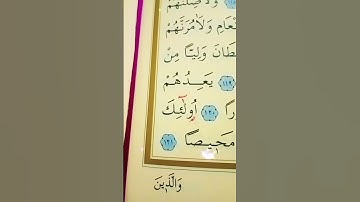 وَلَاُضِلَّنَّهُمْ
نْعَامِ وَلَاٰمُرَنَّهُمْ
طَانَ وَلِيًّا مِنْ
﴿١١٩﴾ يَعِدُهُمْ
رًا ﴿١٢٠﴾ اُو۬لٰٓئِكَ
مَح۪يصًا ﴿١٢١﴾
وَالَّذ۪ينَ